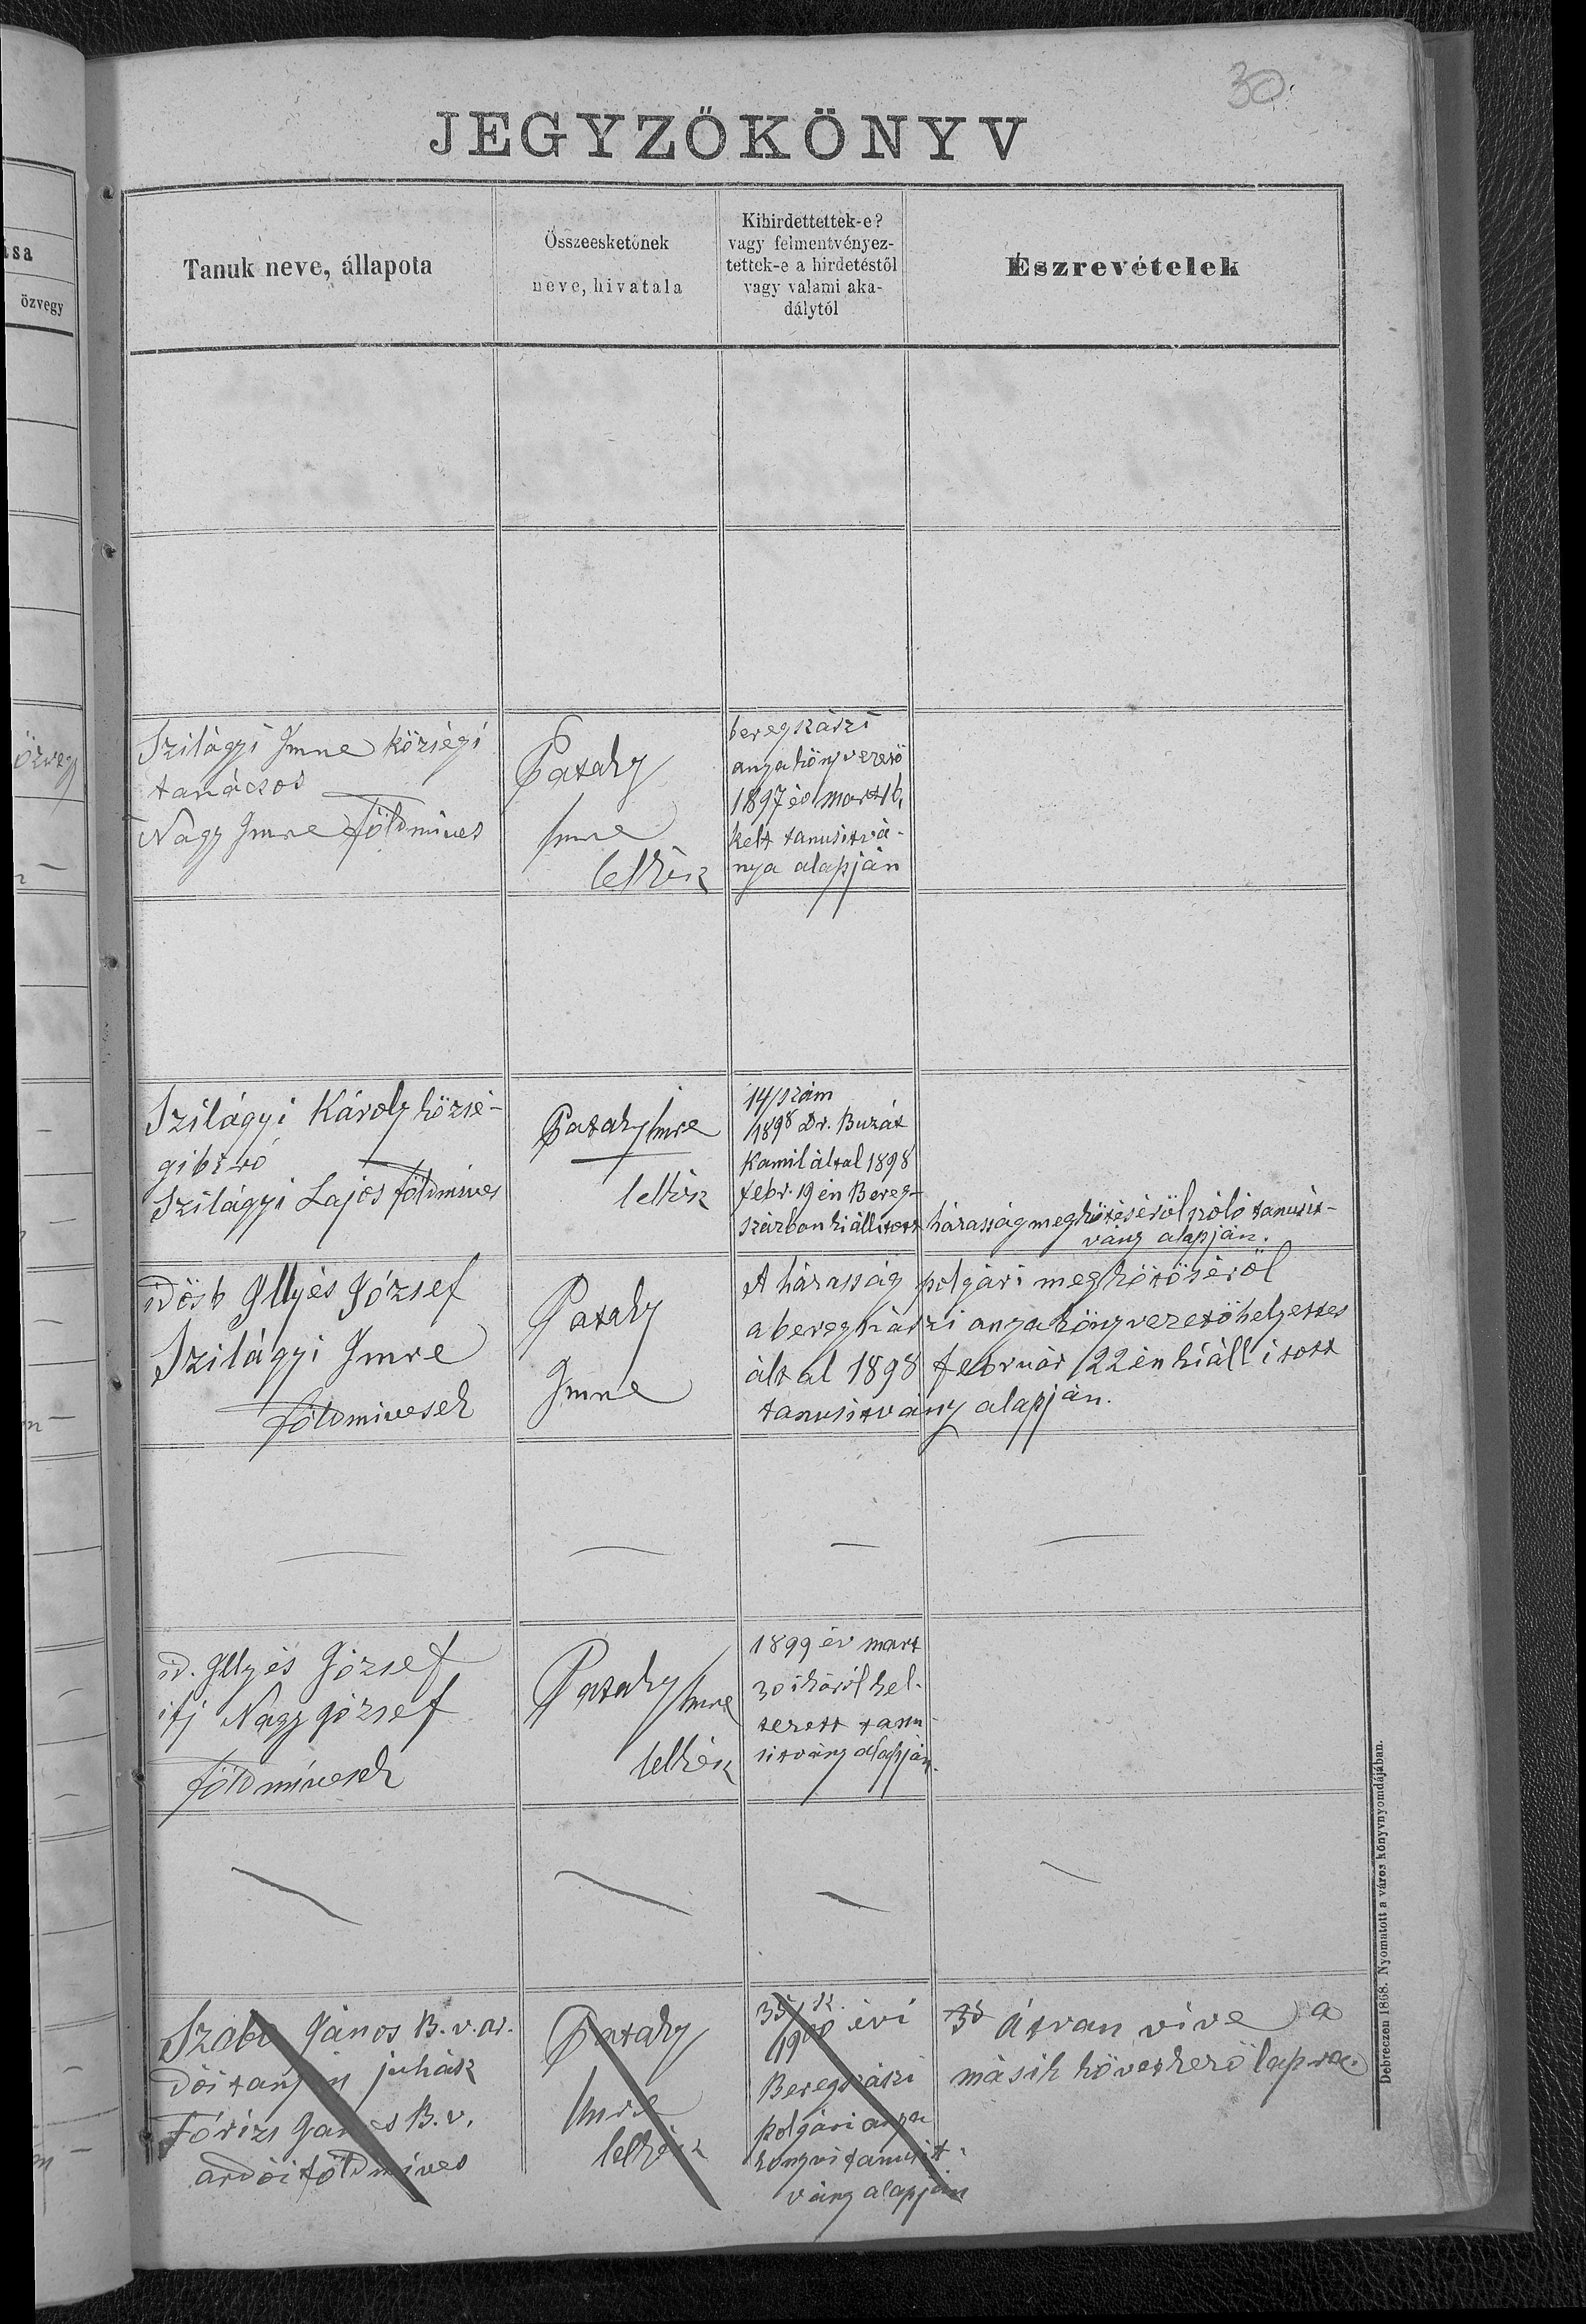 30.
JEGYZŐKÖNYV
ása
özvegy
Tanuk neve, állapota
Összeesketőnek
neve, hivatala
Kihirdettettek-e?
vagy felmentvényez-
tettek-e a hirdetéstől
vagy valami aka-
dálytól
Észrevételek
özvegy
Szilágyi Imre községi
tanácsos
Nagy Imre földmives
Pataky
Imre
lelkész
beregszászi
anyakönyvvezető
1897 év mart 16,
kelt tanusitvá-
nya alapján
Szilágyi Károly közsé-
gi biró
Szilágyi Lajos földmives
Pataky Imre
lelkész
14/szám
1898 Dr. Buzát
Kamil által 1898
febr. 19 én Bereg-
szászban kiállitott házasság megkötéséröl szóló tanusit-
vány alapján.
idősb Illyés József
Szilágyi Imre
földmivesek
Pataky
Imre
A házasság polgári megkötéséröl
a beregszászi anyakönyvvezető helyettes
által 1898 február 22 én kiállitott
tanusitvány alapján.
id. Illyés József
ifj Nagy József
földmivesek
Pataky Imre
lelkész
1899 év mart
30 ikáról kel-
tezett tanu-
sitvány alapján.
Szabó János B. v. ar.
dói tanyán juhász
Fórizs János B. v.
ardói földmives
Pataky
Imre
lelkész
35/sz.
1900 évi
Beregszászi
polgári anya
könyvi tanusit-
vány alapján
Átvan vive a
másik következő lapra.
Debreczen 1868. Nyomatott a város könyvnyomdájában.